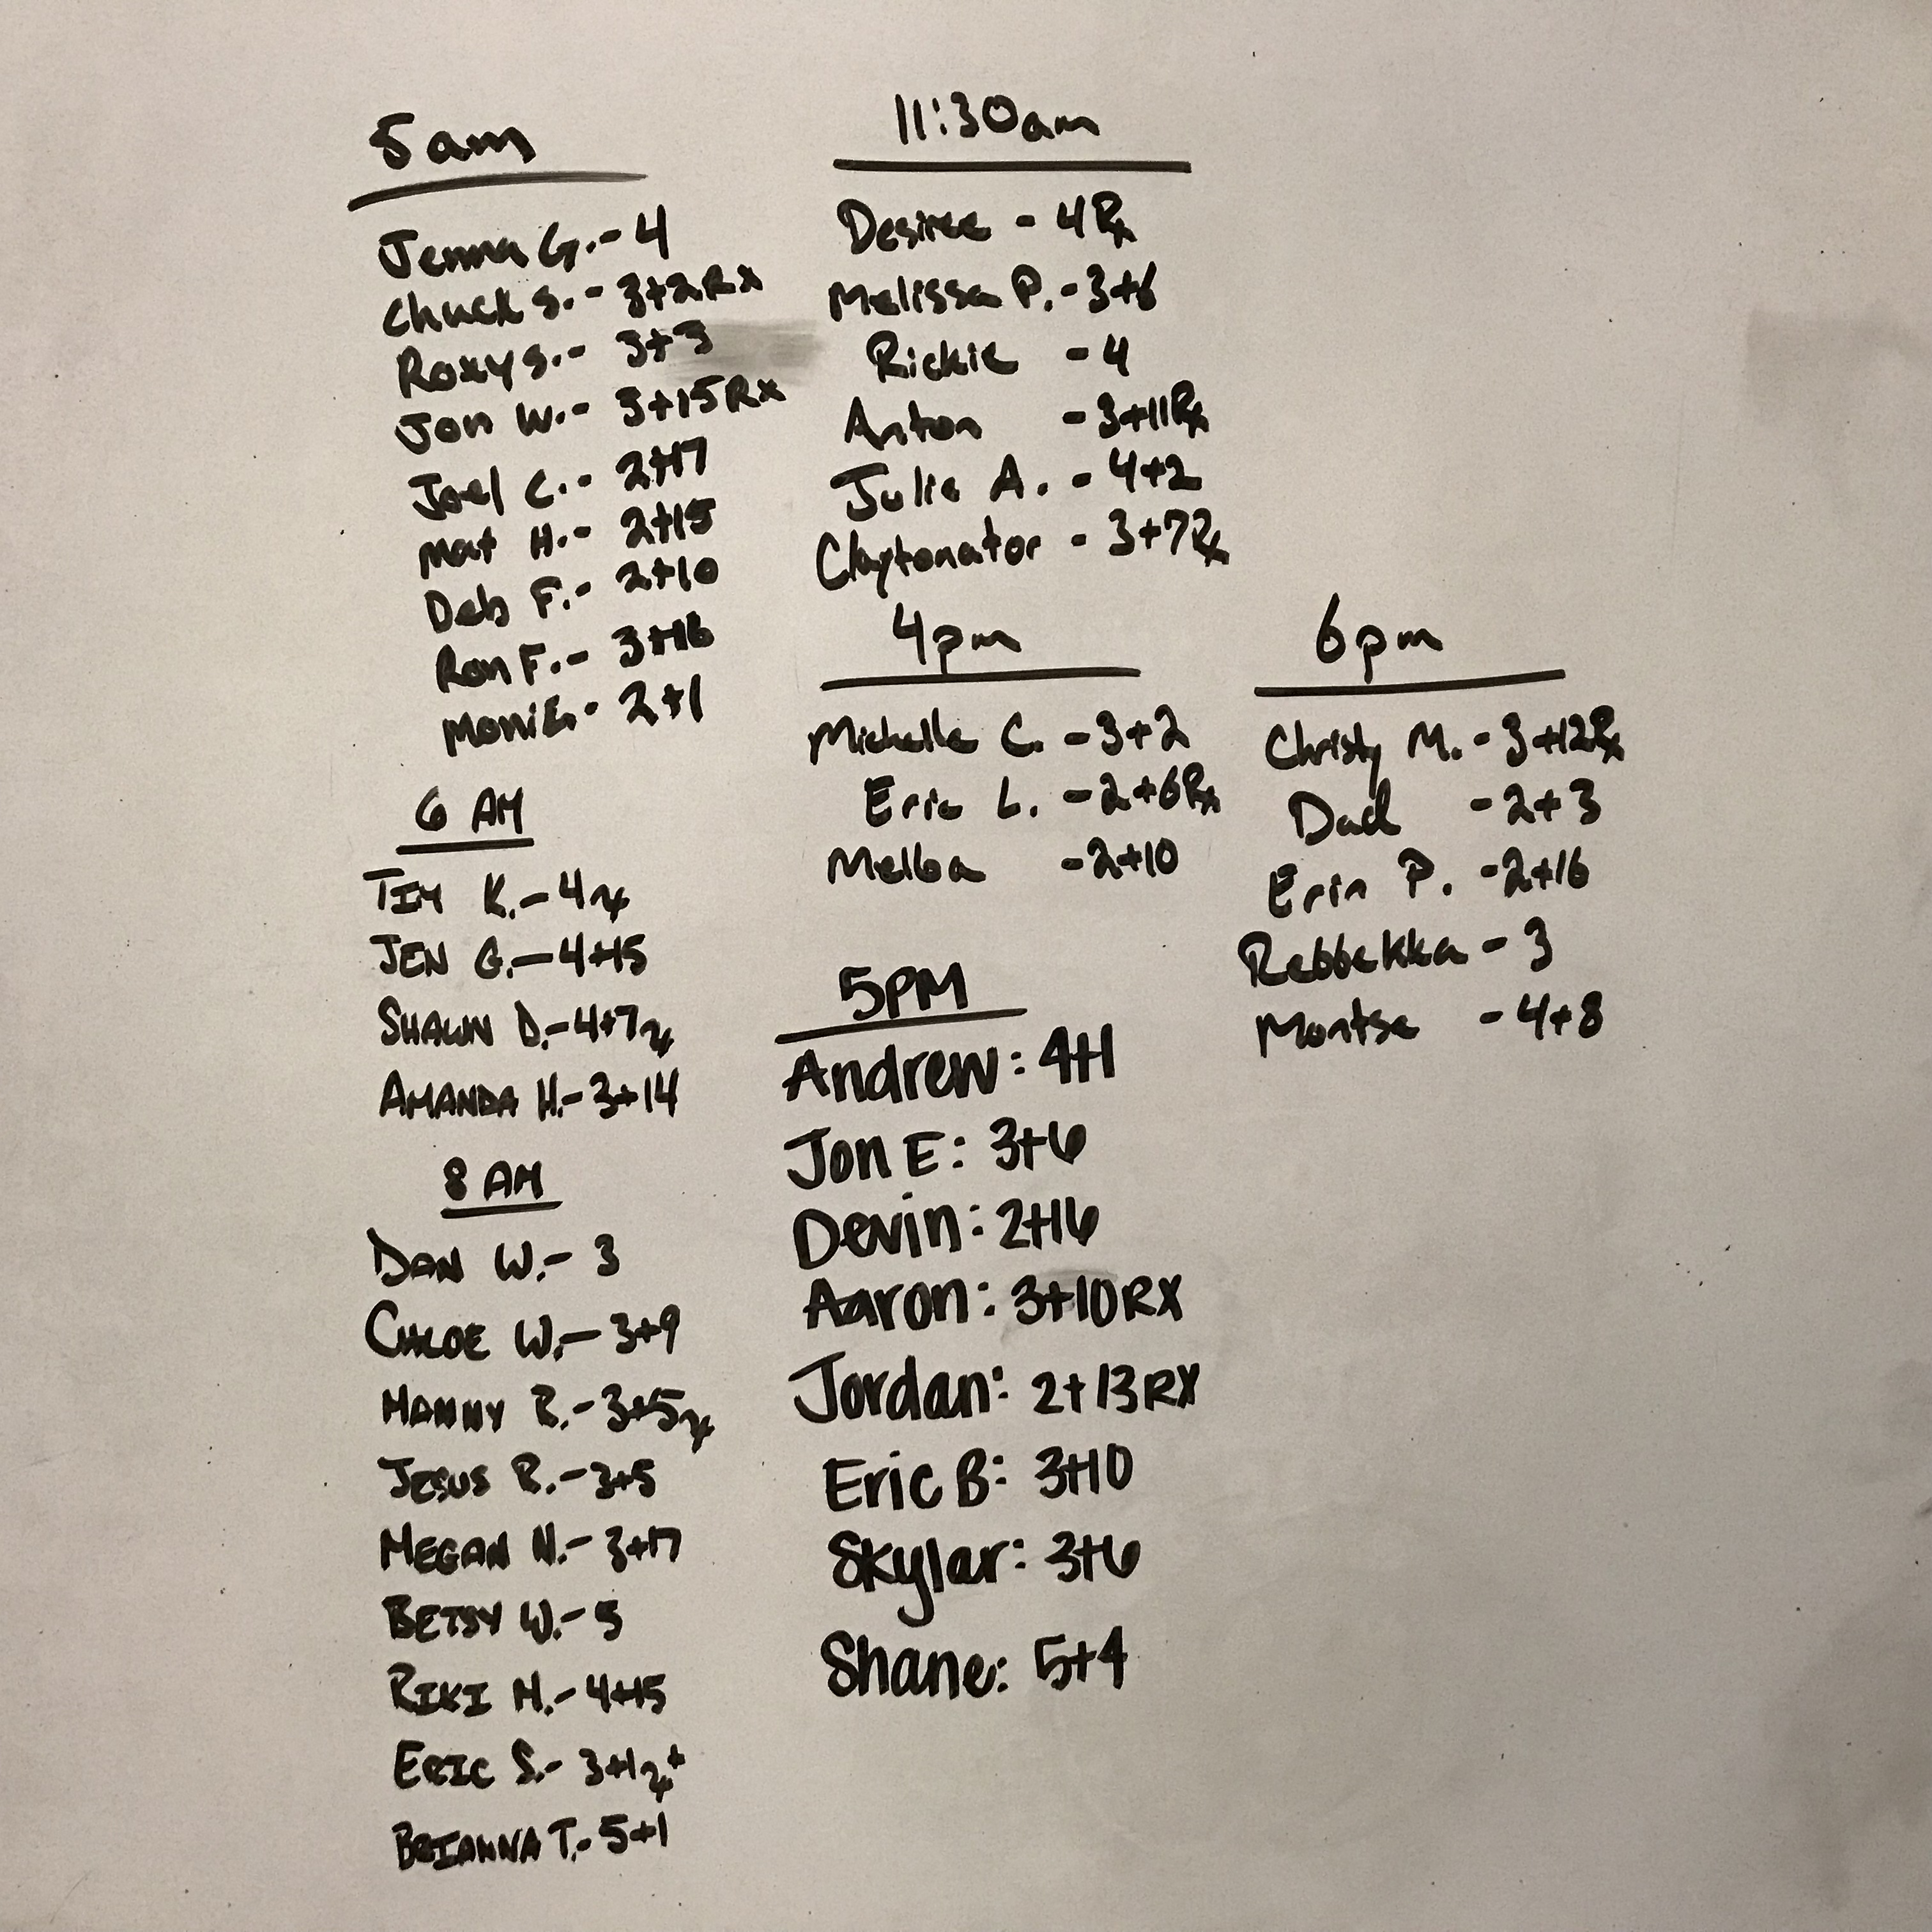 5am
Jenna G.- 4
Chuck S.- 3+2Rx
Roxy S.- 3+3
Jon W.- 3+15Rx
Joel C.- 2+17
Mat H.- 2+15
Deb F.- 2+10
Ron F.- 3+16
Moni E.- 2+1
6 AM
TIM K.- 4rx
JEN G.- 4+15
SHAWN D.- 4+7rx
AMANDA H.- 3+14
8 AM
DAN W.- 3
CHLOE W.- 3+9
MANNY R.- 3+5rx
JESUS R.- 3+5
MEGAN N.- 3+17
BETSY W.- 5
RIKI M.- 4+15
ERIC S.- 3+1rx+
BRIANNA T.- 5+1
11:30am
Desiree - 4Rx
Melissa P.- 3+6
Rickie - 4
Anton - 3+11Rx
Julie A. - 4+2
Claytonator - 3+7Rx
4pm
Michelle C. - 3+2
Eric L. - 2+6Rx
Melba - 2+10
5PM
Andrew: 4+1
Jon E: 3+6
Devin: 2+16
Aaron: 3+10RX
Jordan: 2+13RX
Eric B: 3+10
Skylar: 3+6
Shane: 5+4
6pm
Christy M. - 3+12Rx
Dad - 2+3
Erin P. - 2+16
Rebbekka - 3
Montse - 4+8